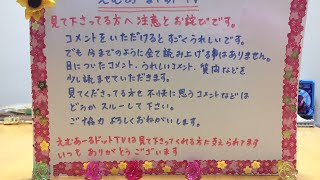 えむあーるドットTV
見て下さってる方へ注意とお詫びです。
コメントをいただけるとすごくうれしいです。
でも今までのように全て読み上げる事はありません。
目についたコメント、うれしいコメント、質問などを
少し読ませていただきます。
見てくださってる方も不快に思うコメントなどは
どうかスルーして下さい。
ご協力よろしくおねがいします。
えむあーるドットTVは見て下さってくれる方に支えられてます
いつもありがとうございます